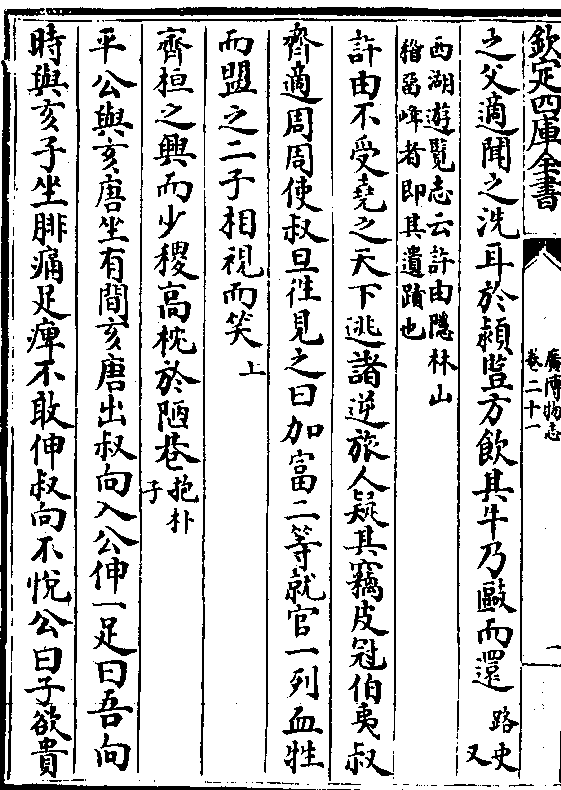 欽定四庫全書
廣博物志
卷二十一
一
之父適聞之洗耳於潁豎方飲其牛乃敺而還路史
又
西湖遊覽志云許由隱林山
稽留峰者即其遺蹟也
許由不受堯之天下逃諸逆旅人疑其竊皮冠伯夷叔
齊適周周使叔旦往見之曰加富二等就官一列血牲
而盟之二子相視而笑上
齊桓之興而少稷高枕於陋巷抱朴
子
平公與亥唐坐有間亥唐出叔向入公伸一足曰吾向
時與亥子坐腓痛足痺不敢伸叔向不悅公曰子欲貴